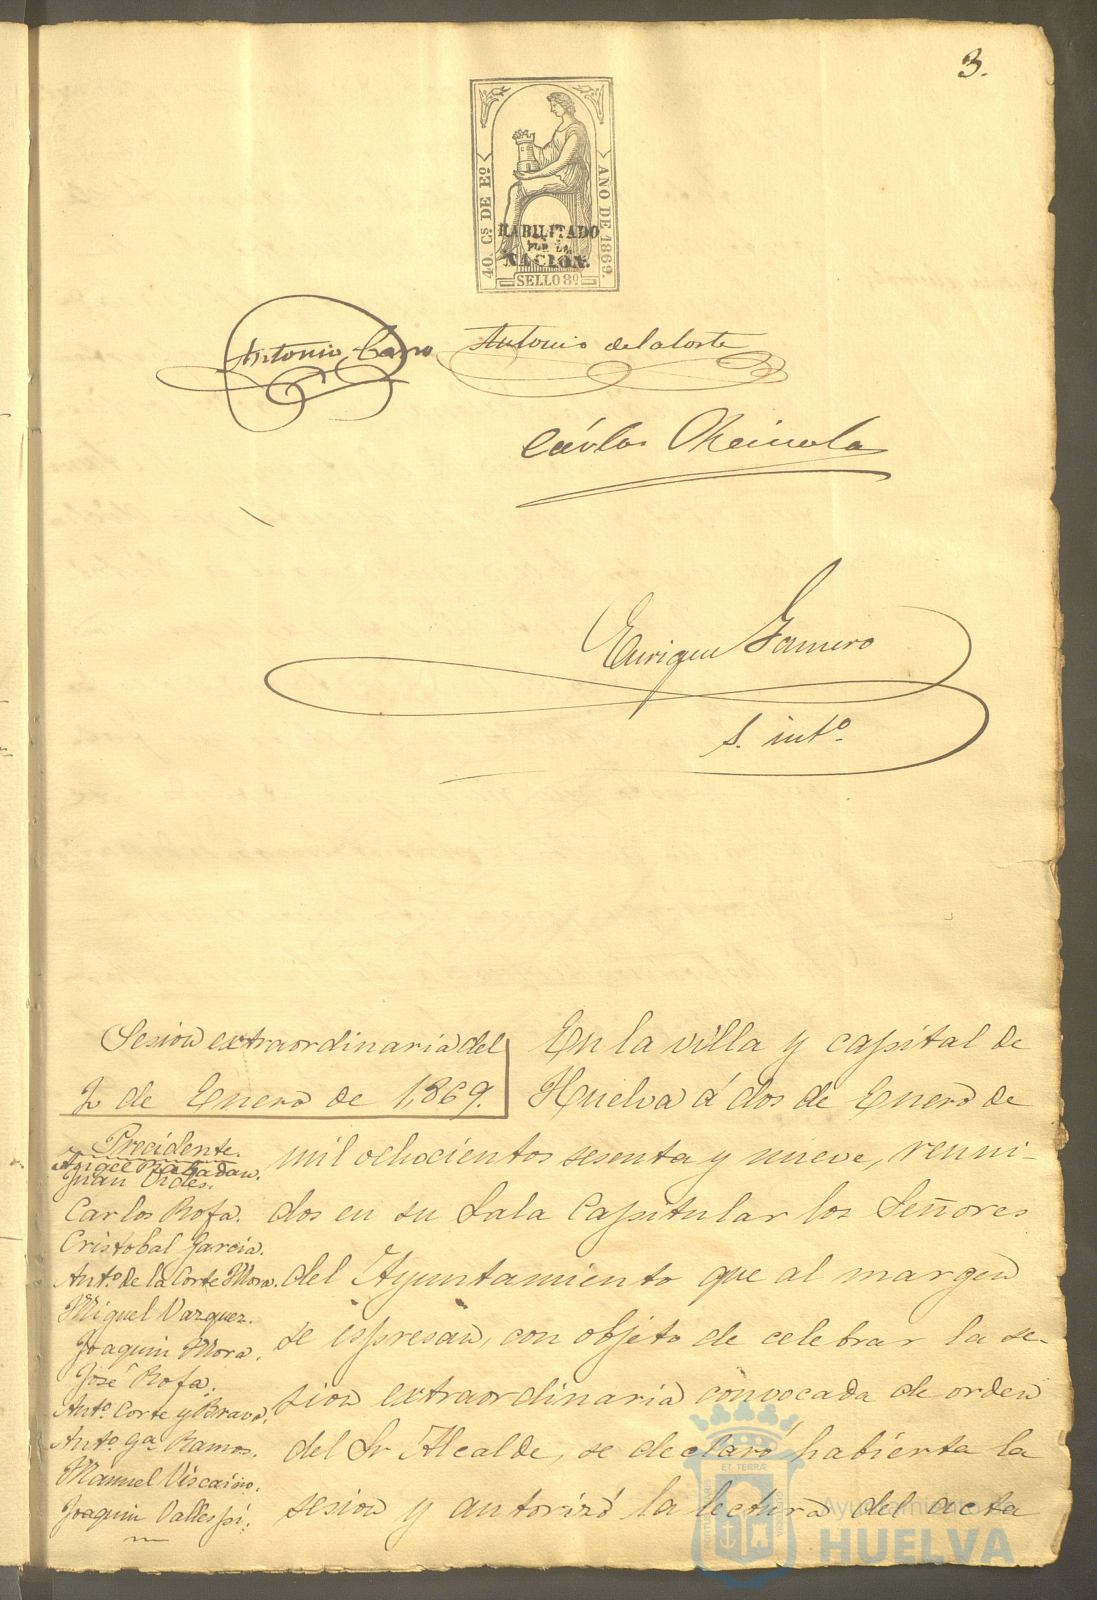 3.
40. Cs. DE Eo.
AÑO DE 1869.
HABILITADO
POR LA
NACION.
SELLO 8º
Antonio Cano Antonio de la Corte
Cárlos
Enrique Gamero
S. intº
Sesion extraordinaria del
2 de Enero de 1,869.
Precidente.
Juan
Carlos Rofa.
Cristobal Garcia.
Antº de la Corte Mora.
Miguel Vazquez.
Joaquin Mora.
José Rofa.
Antº Corte y Bravo.
Antº Gª Ramos.
Manuel Viscaino.
Joaquin Vallespi.
En la villa y capital de
Huelva á dos de Enero de
mil ochocientos sesenta y nueve, reuni-
dos en su Sala Capitular los Señores
del Ayuntamiento que al margen
se espresan, con objeto de celebrar la se-
sion extraordinaria convocada de orden
del Sr Alcalde, se declaró habierta la
sesion y autorizó la lectura del acta
Ayuntamiento de
HUELVA